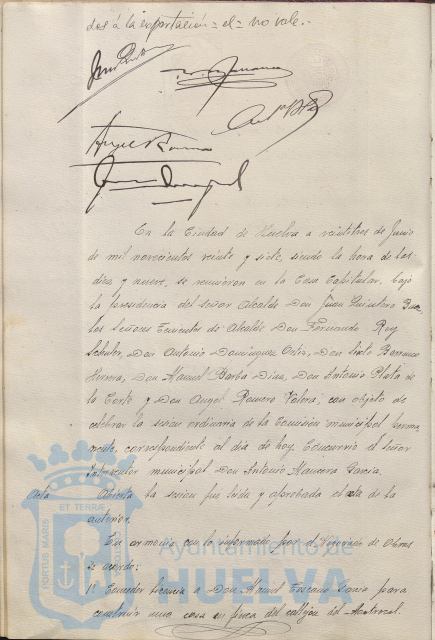 dos á la exportación = el = no vale.-
En la Ciudad de Huelva a veintitres de Junio
de mil novecientos veinte y siete, siendo la hora de las
diez y nueve, se reunieron en la Casa Capitular, bajo
la presidencia del Señor Alcalde Don Juan Quintero Bae,
los Señores Tenientes de Alcalde Don Fernando Rey
Don Antonio Domínguez Ortiz, Don Sixto Barranco
Herrera, Don Manuel Barba Diaz, Don Antonio Plata de
la Corte y Don Angel Romero Valera; con objeto de
celebrar la sesion ordinaria de la Comisión municipal perma
nente, correspondiente al dia de hoy. Concurrió el Señor
Interventor municipal Don Antonio Garcia.
Acta Abierta la sesion fue leida y aprobada el acta de la
anterior.
En armonia con lo informado por el Negociado de Obras
se acordó:
1º Conceder licencia a Don Manuel Toscano Garcia para
construir una casa en finca del callejon del
ET TERRÆ
PORTUS MARIS
Ayuntamiento de
HUELVA